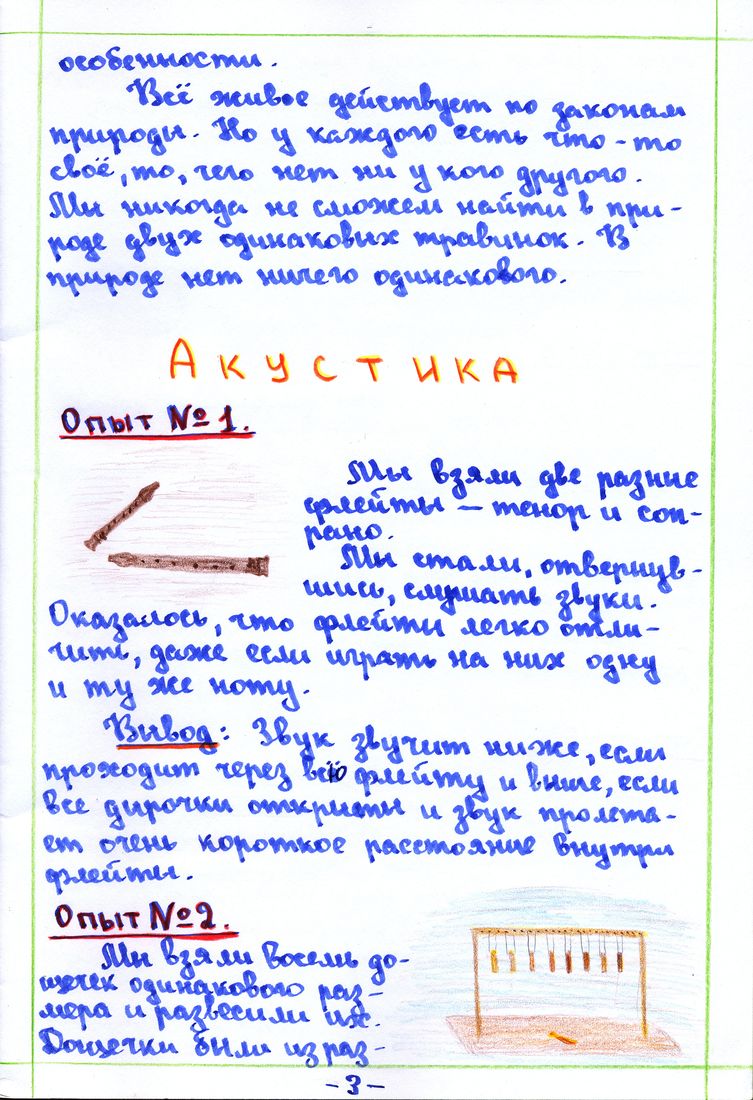 особенности.
Всё живое действует по законам
природы. Но у каждого есть что-то
своё, то, чего нет ни у кого другого.
Мы никогда не сможем найти в при-
роде двух одинаковых травинок. В
природе нет ничего одинакового.
Акустика
Опыт № 1.
Мы взяли две разные
флейты – тенор и соп-
рано.
Мы стали, отвернув-
шись, слушать звуки.
Оказалось, что флейты легко отли-
чить, даже если играть на них одну
и ту же ноту.
Вывод: Звук звучит ниже, если
проходит через всю флейту и выше, если
все дирочки открыты и звук пролета-
ет очень короткое расстояние внутри
флейты.
Опыт №2.
Мы взяли восемь до-
щечек одинакового раз-
мера и развесили их.
Дощечки были из раз-
-3-